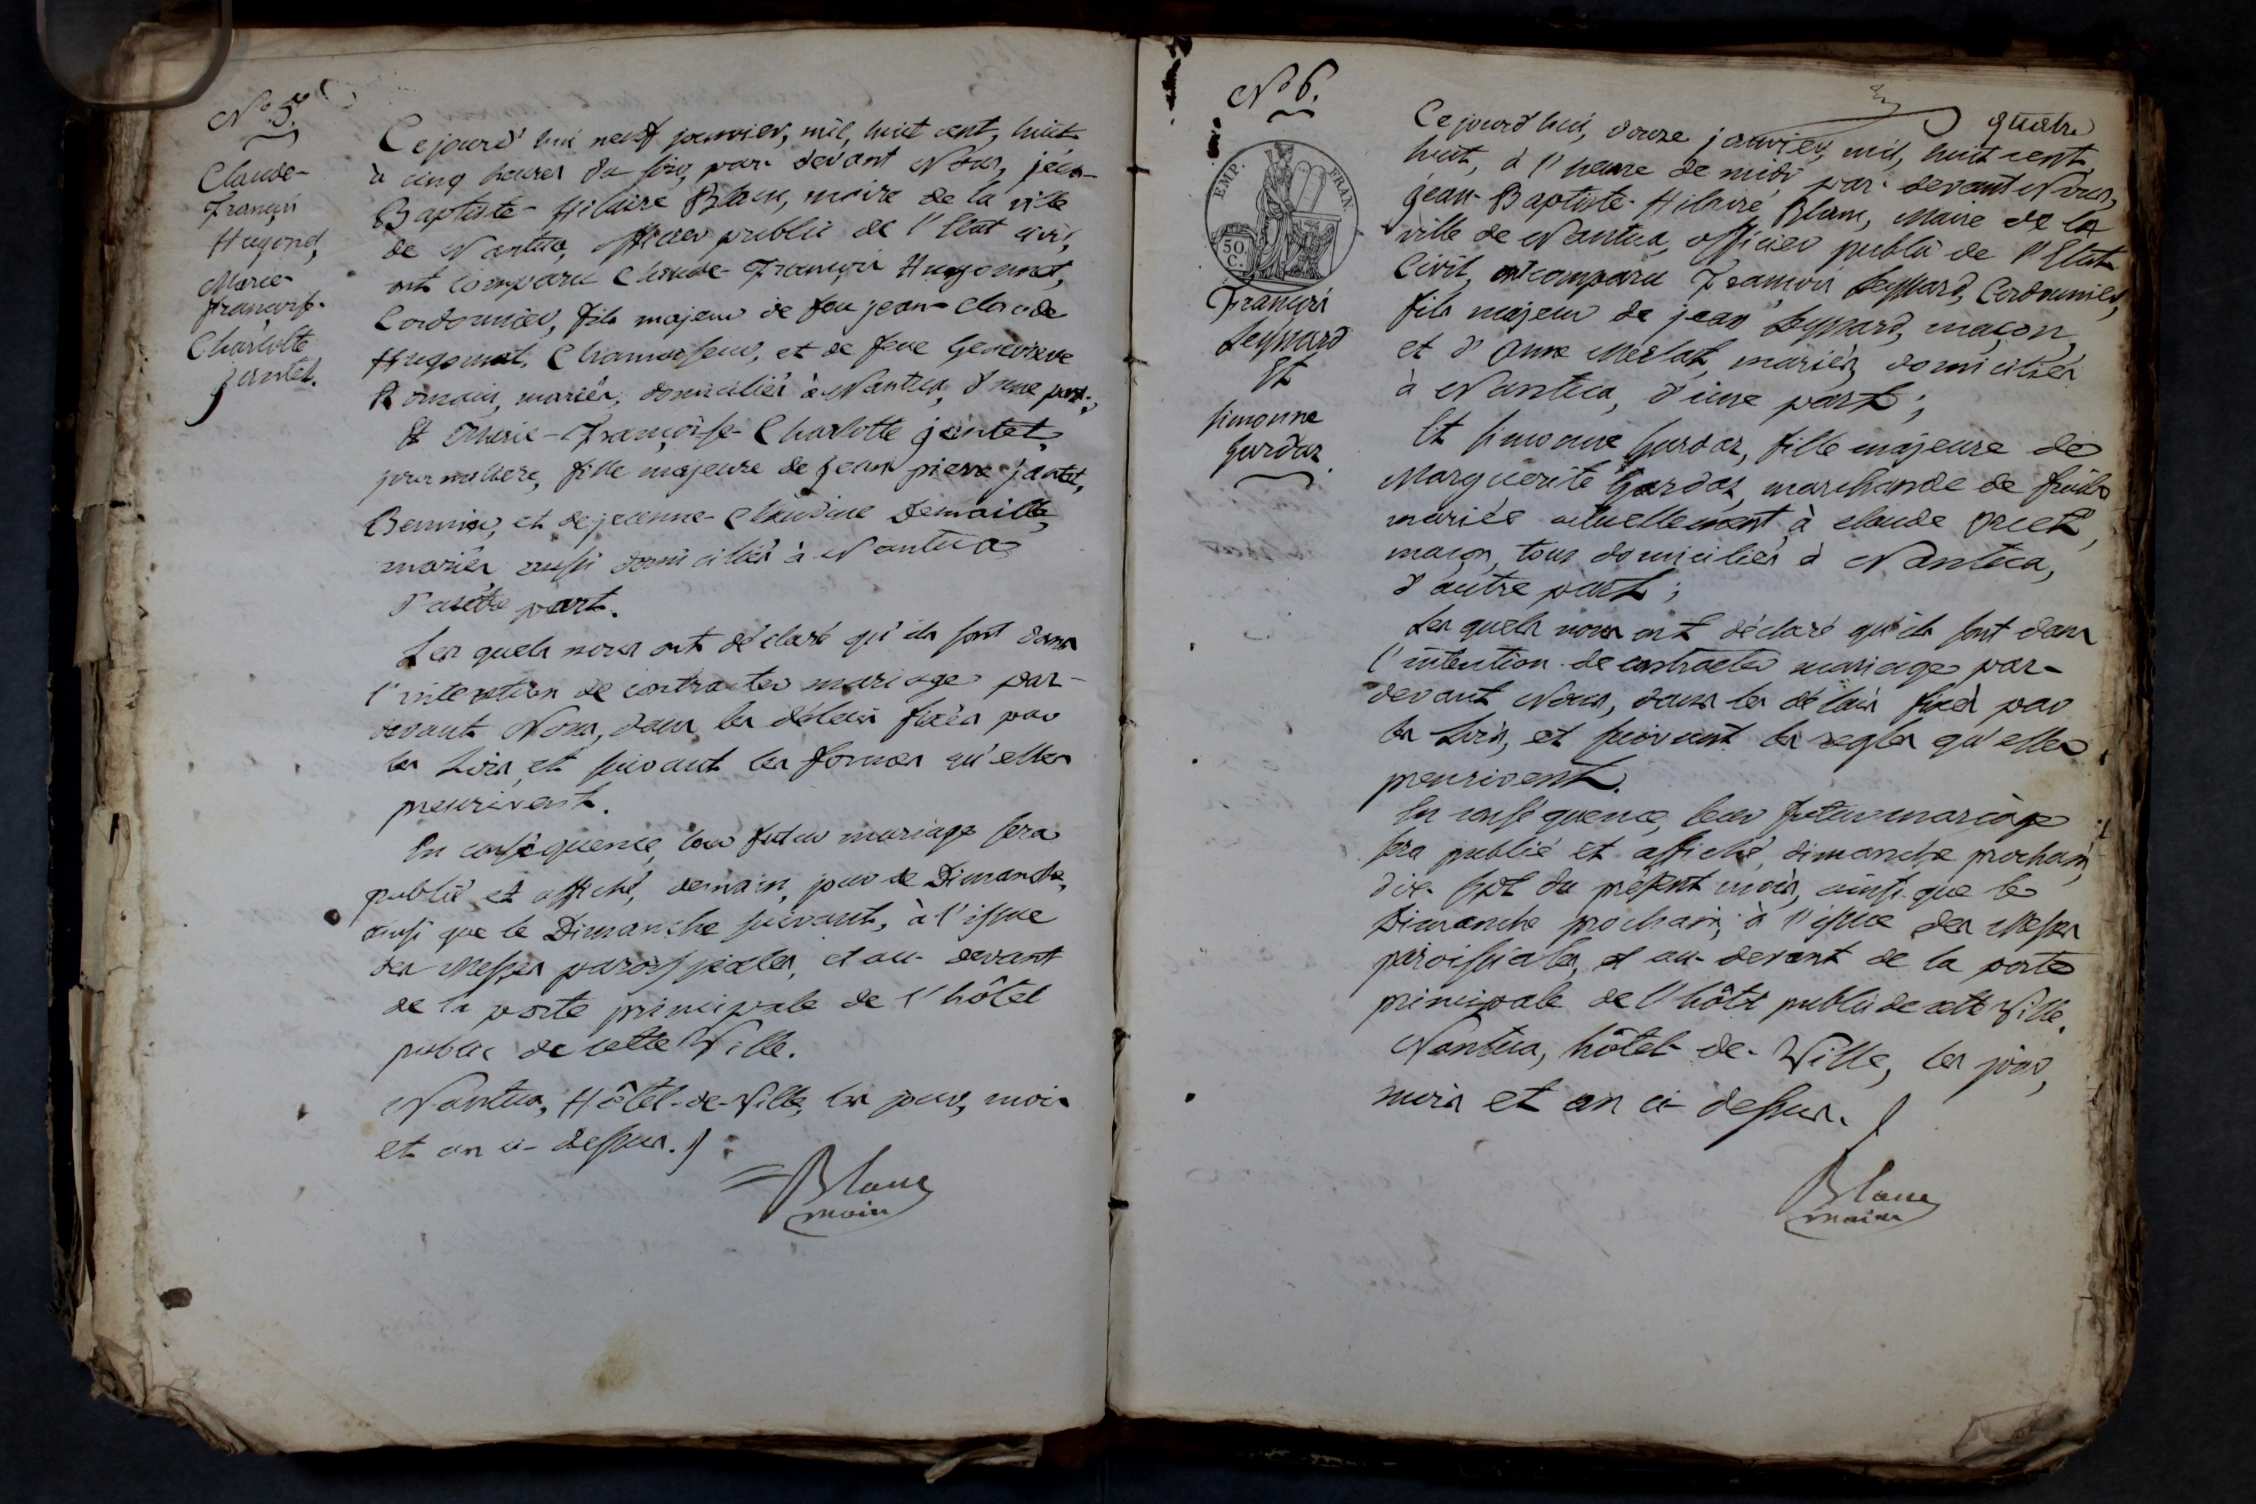 N.° 5.
Claude-
François
Hugonet,
Marie-
françoise-
Charlotte
jantet.
Cejourd'hui neuf janvier, mil, huit cent, huit
à cinq heures du soir, par-devant Nous, jean-
Baptiste-Hilaire Blanc, maire de la ville
de Nantua, officier public de l'Etat civil,
ont comparu Claude-François Hugonnet,
Cordonnier, fils majeur de feu jean-Claude
Hugonnet, Chamoiseur, et de feue Genevieve
Romain, mariés, domiciliés à Nantua, d'une part;
Et Marie-Françoise-Charlotte jantet,
journaliere, fille majeure de jean pierre jantet,
et de jeanne-Claudine Demaille,
mariés aussi domiciliés à Nantua
d'autre part.
Les quels nous ont déclaré qu'ils sont dans
l'intention de contracter mariage par-
devant Nous, dans les délais fixés par
les Lois, et suivant les formes qu'elles
prescrivent.
En conséquence, leur futur mariage sera
publié et affiché, demain, jour de Dimanche,
ainsi que le Dimanche suivant, à l'issue
des Messes paroissiales, et au-devant
de la porte principale de l'hôtel
public de cette Ville.
Nantua, Hôtel-de-Ville, les jour, mois
et an ci-dessus.
Blanc
maire
quatre
N.° 6.
EMP. FRAN.
50
C.
François
Leyssard
Et
simonne
Gardas.
Cejourd'hui, douze janvier, mil, huit cent,
huit, à l'heure de midi par-devant Nous,
jean-Baptiste-Hilaire Blanc, Maire de la
ville de Nantua, officier public de l'Etat
Civil, ont comparu François Leyssard, Cordonnier,
fils majeur de jean Leyssard, maçon,
et d'Anne Merlat, mariés, domiciliés
à Nantua, d'une part;
Et simonne Gardas, fille majeure de
Marguerite Gardas, marchande de fruits
mariée actuellement à claude
maçon, tous domiciliés à Nantua,
d'autre part;
Les quels nous ont déclaré qu'ils sont dans
l'intention de contracter mariage par-
devant Nous, dans les délais fixés par
les Lois, et suivant les regles qu'elles
prescrivent.
En conséquence, leur futur mariage
sera publié et affiché, dimanche prochain,
dix-sept du présent mois, ainsi que le
Dimanche prochain, à l'issue des Messes
paroissiales, et au-devant de la porte
principale de l'hôtel public de cette Ville.
Nantua, hôtel-de-Ville, les jour,
mois et an ci-dessus.
Blanc
maire